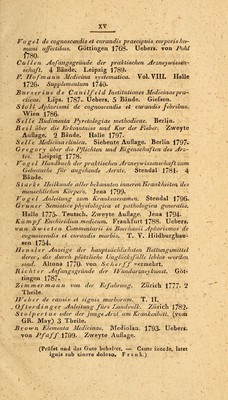 XV
Vogel de cognoscendis et curandis praecipuis corporis hu-
mani affectibus. Göttingen 1768. Uebers. von Pohl
1780.
Cullen Anfangsgründe der praktischen Arzneywissen-
schaft. 4 Bände. Leipzig 1789.
F. Hofmann Medicina systematica. Vol. VIII. Halle
1726. Supplementum 1740.
Burserius de Canilfeld Institutiones Medicinae pra-
cticae. Lips. 1787. Uebers. 5 Bände. Giessen.
Stoll Aphorismi de cognoscendis et curandis febribus.
Wien 1786.
Selle Rudimenta Pyretologiae methodicae. Berlin.
Reil über die Erkenntniss und Kur der Fieber. Zweyte
Auflage. 2 Bände. Halle 1797.
Selle Medicina clinica. Siebente Auflage. Berlin 1797.
Gregory über die Pflichten und Eigenschaften des Arz-
tes. Leipzig 1778.
Vogel Handbuch der praktischen Arzneywissenschaft zum
Gebrauche für angehende Aerzte. Stendal 1781. 4
Bände.
Starke Heilkunde aller bekannten inneren Krankheiten des
menschlichen Körpers. Jena 1799.
Vogel Anleitung zum Krankenexamen. Stendal 1796.
Gruner Semiotice physiologica et pathologica generalis.
Halle 1775. Teutsch. Zweyte Auflage. Jena 1794.
Kämpf Enchiridion medicum. Frankfurt 1788. Uebers.
van Swieten Commentaria in Boerhavii Aphorismos de
cognoscendis et curandis morbis. T. V. Hildburghau-
sen 1754.
Hensler Anzeige der hauptsächlichsten Rettungsmittel
derer, die durch plötzliche Unglücksfälle leblos worden
sind. Altona 1770. von Scherf vermehrt.
Richter Anfangsgründe der Wundarzneykunst. Göt-
tingen 1787.
Zimmermann von der Erfahrung. Zürich 1777. 2
Theile.
Weber de causis et signis morborum. T. II.
Ofterdinger Anleitung fürs Landvolk. Zürich 1782.
Stolpertus oder der junge Arzt am Krankenbett. (vom
GR. May) 3 Theile.
Brown Elementa Medicinae. Mediolan. 1793. Uebers.
von Pfaff 1799. Zweyte Auflage.
(Prüfet und das Gute behaltet. — Caute incede, latet
ignis sub cinere doloso. Frank.)